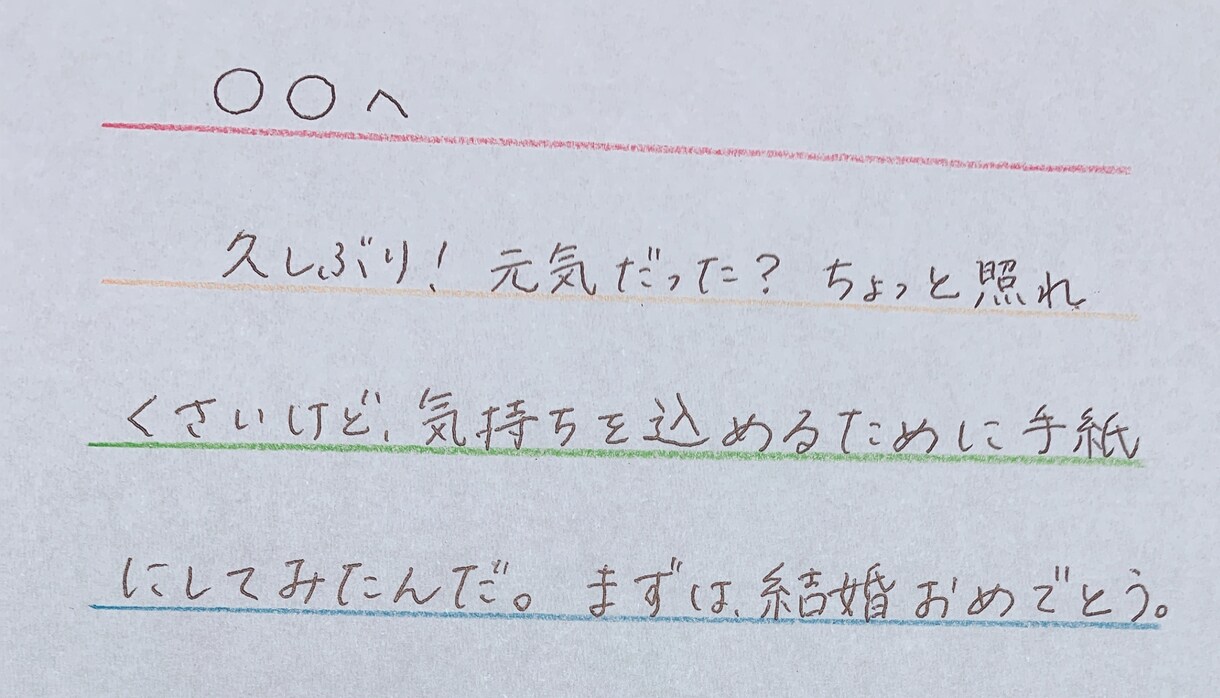 ○○へ
久しぶり！元気だった？ちょっと照れ
くさいけど、気持ちを込めるために手紙
にしてみたんだ。まずは、結婚おめでとう。